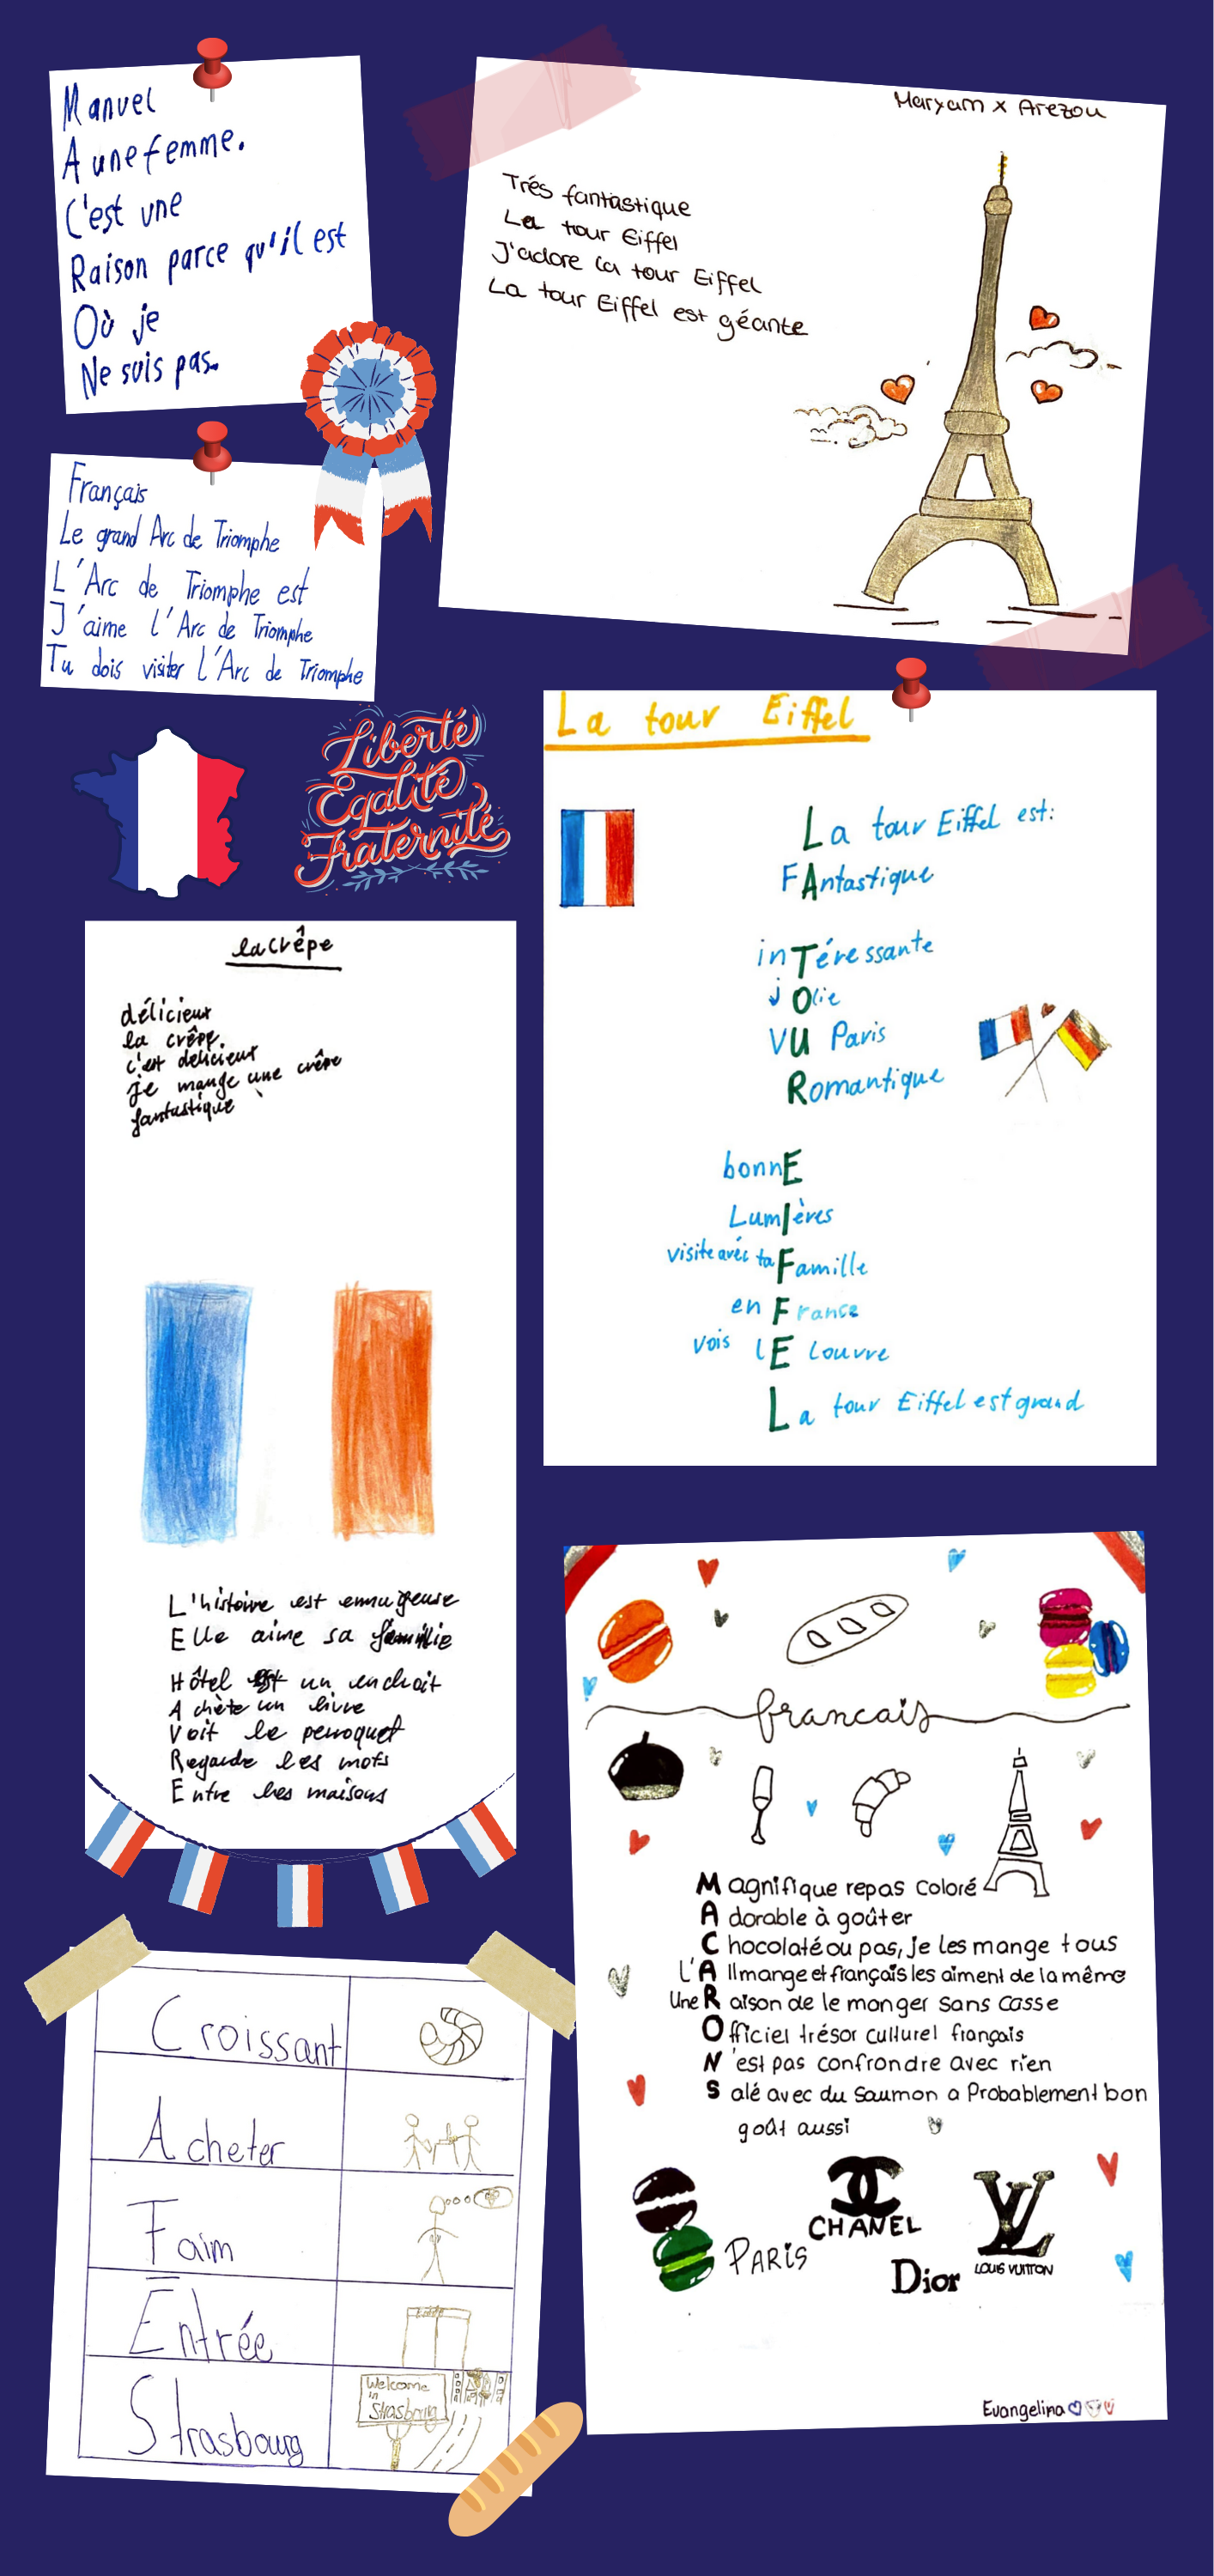 Manuel
A une femme.
C'est une
Raison parce qu'il est
Où je
Ne suis pas.
Maryam x Arezou
Trés fantastique
La tour Eiffel
J'adore la tour Eiffel
La tour Eiffel est géante
Français
Le grand Arc de Triomphe
L'Arc de Triomphe est
J'aime l'Arc de Triomphe
Tu dois visiter l'Arc de Triomphe
Liberté
Égalité
Fraternité
La tour Eiffel
La tour Eiffel est:
FAntastique
inTéressante
jOlie
VU Paris
Romantique
bonnE
LumIères
visite avéc ta Famille
en France
vois lE Louvre
La tour Eiffel est grand
la crêpe
délicieux
la crêpe.
c'est delicieux
je mange une crêpe
fantastique
L'histoire est ennuyeuse
Elle aime sa famille
Hôtel est un endroit
Achète un livre
Voit le perroquet
Regarde les mots
Entre les maisons
francais
Magnifique repas coloré
Adorable à goûter
Chocolaté ou pas, je les mange tous
L'Allmange et français les aiment de la même
Une Raison de le manger sans casse
Officiel trésor culturel français
N'est pas confrondre avec rien
Salé avec du Saumon a Probablement bon
goût aussi
PARIS
CHANEL
Dior
LV
LOUIS VUITTON
Evangelina
Croissant
Acheter
Faim
Entrée
Strasbourg
Welcome
in
Strasbourg